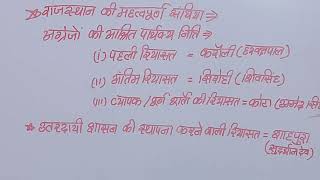 * राजस्थान की महत्वपूर्ण संधियां ⇒
अंग्रेजों की आश्रित पार्थक्य निति
(i) पहली रियासत = करौली (हरबक्षपाल)
(ii) अंतिम रियासत = सिरोही (शिवसिंह)
(iii) व्यापक / पूर्ण शर्तों की रियासत = कोटा
* उतरदायी शासन की स्थापना करने वाली रियासत = शाहपुरा
(सुदर्शनदेव)